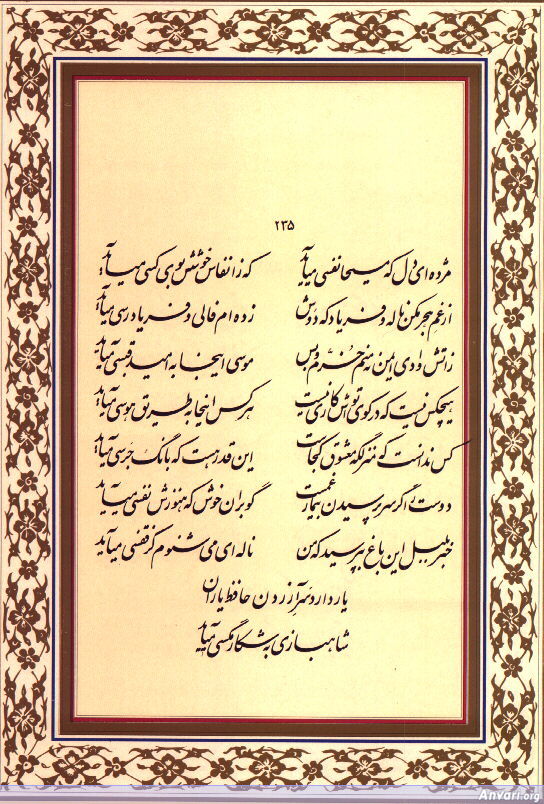 ۲۳۵
مژده ای دل که مسیحا نفسی میآید که ز انفاس خوشش بوی کسی میآید
از غم هجر مکن ناله و فریاد که دوش زده ام فالی و فریادرسی میآید
زاتش وادی ایمن نه منم خرم و بس موسی اینجا به امید قبسی میآید
هیچکس نیست که در کوی تواش کاری نیست هر کس اینجا به طریق هوسی میآید
کس ندانست که منزلگه معشوق کجاست این قدر هست که بانگ جرسی میآید
دوست را گر سر پرسیدن بیمار غمست گو بران خوش که هنوزش نفسی میآید
خبر بلبل این باغ بپرسید که من ناله ای می شنوم کز قفسی میآید
یار دارد سر آزردن حافظ یاران
شاهبازی به شکار مگسی میآید
Anvari.org